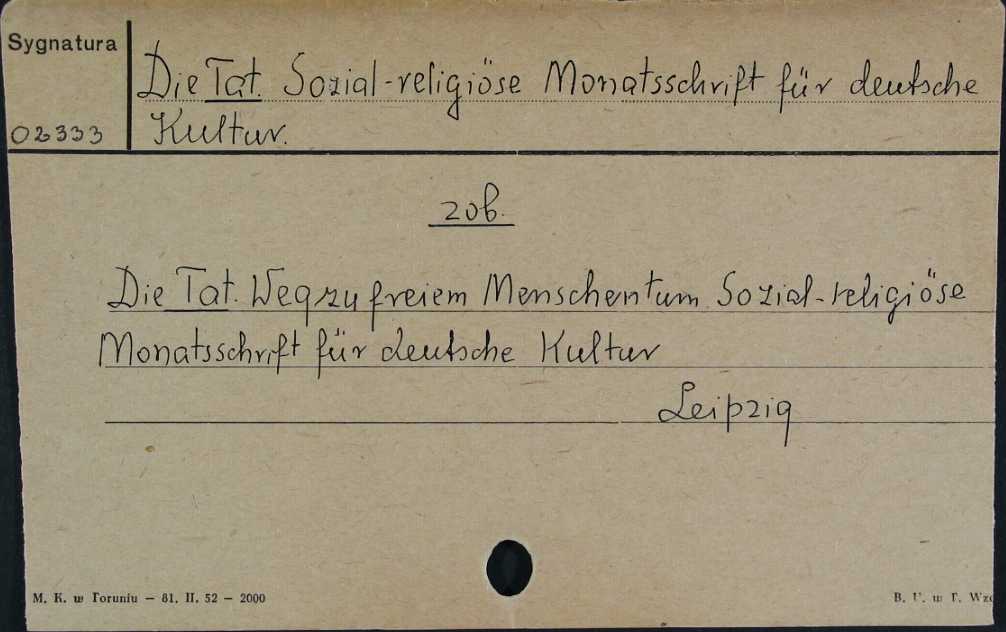 Sygnatura
02333
Die Tat. Sozial-religiöse Monatsschrift für deutsche
Kultur.
zob.
Die Tat. Weg zu freiem Menschentum. Sozial-religiöse
Monatsschrift für deutsche Kultur
Leipzig
M. K. w Toruniu — 81. II. 52 — 2000
B. U. w T.